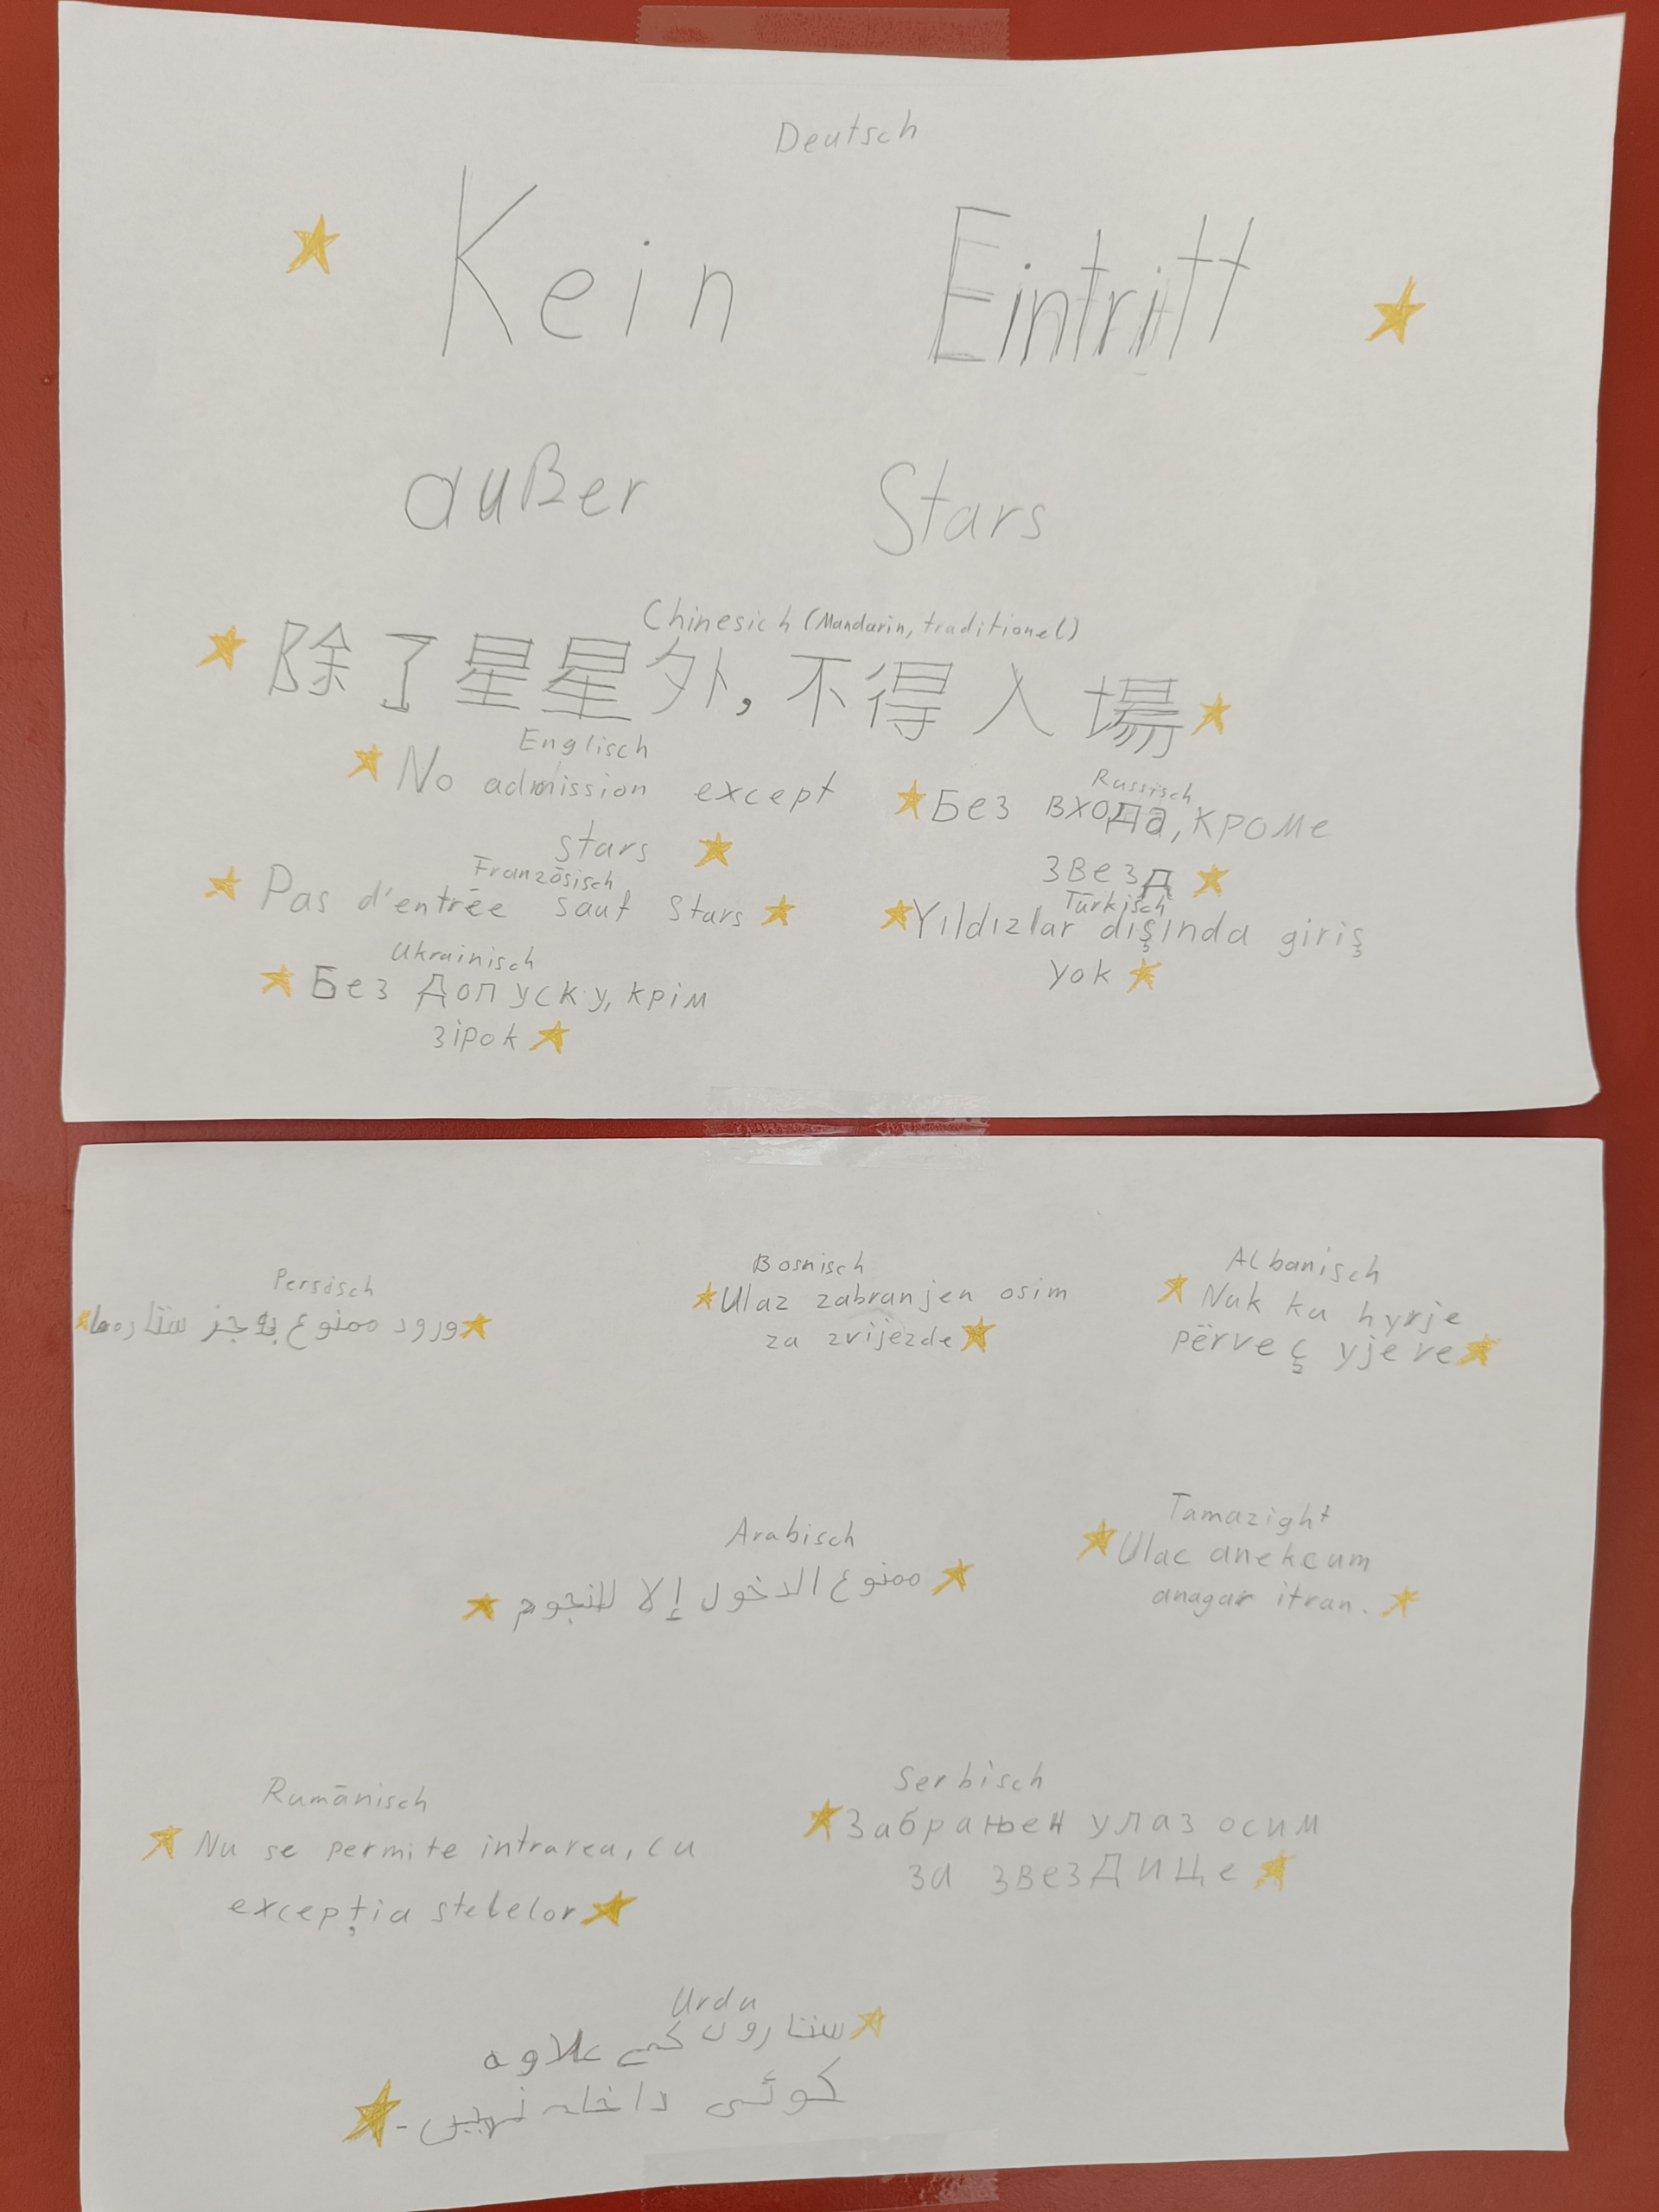 Deutsch
Kein Eintritt
außer Stars
Chinesich (Mandarin, traditionel)
除了星星外,不得入場
Englisch
No admission except
stars
Russisch
Без входа, кроме
звезд
Französisch
Pas d'entrée sauf Stars
Türkisch
Yıldızlar dışında giriş
yok
Ukrainisch
Без допуску, крім
зірок
Persisch
ورود ممنوع به جز ستاره‌ها
Bosnisch
Ulaz zabranjen osim
za zvijezde
Albanisch
Nuk ka hyrje
përveç yjeve
Arabisch
ممنوع الدخول إلا للنجوم
Tamazight
Ulac anekcum
anagar itran.
Rumänisch
Nu se permite intrarea, cu
excepția stelelor
Serbisch
Забрањен улаз осим
за звездице
Urdu
ستاروں کے علاوہ
کوئی داخلہ نہیں۔